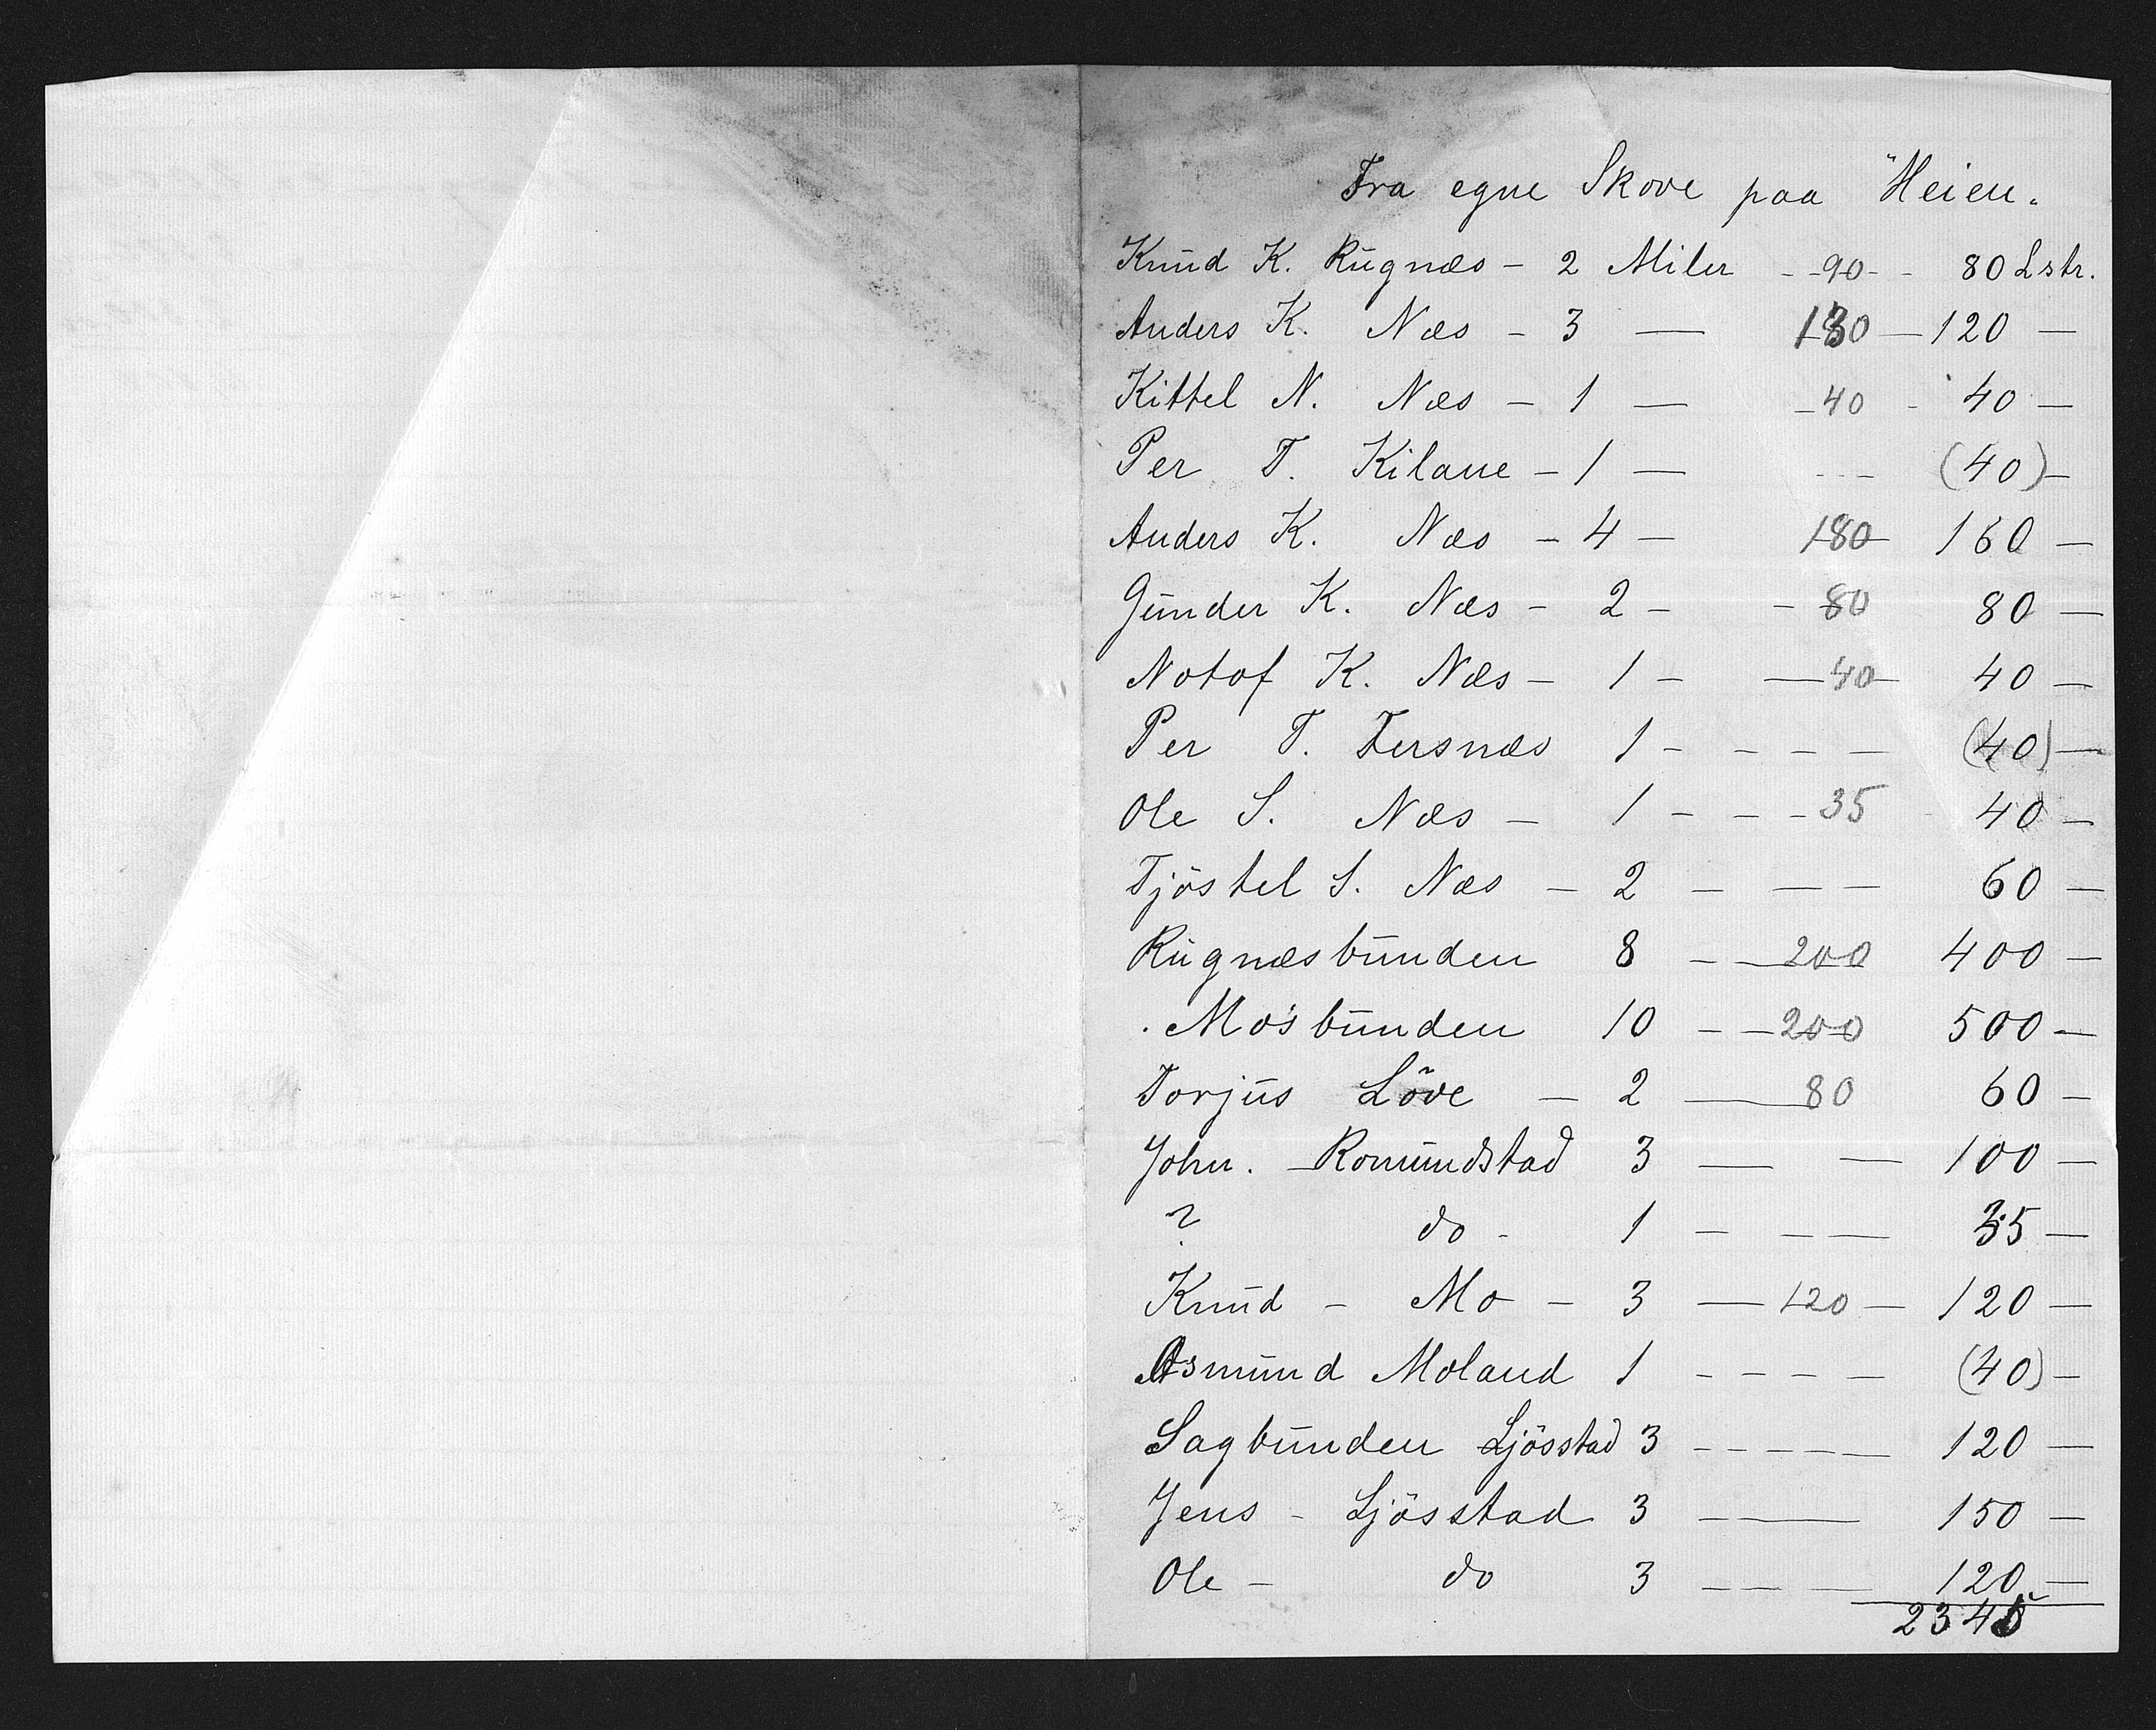 Fra egne Skove paa "Heien.
Knud K. Rugnæs - 2 Miler - -90- - 80 Lstr.
Anders K. Næs - 3 — 130 — 120 —
Kittel N. Næs - 1 — -40 - 40 —
Per T. Kilane - 1 — --- (40) —
Anders K. Næs - 4 - 180 - 160 —
Gunder K. Næs - 2 - - 80 80 —
Notof K. Næs - 1 - — 40 - 40 —
Per T. Tersnæs 1 - - - - — (40) —
Ole S. Næs - 1 - - - 35 40 —
Tjöstel S. Næs - 2 - — — 60 —
Rugnæsbunden 8 - — 200 400 —
Mosbunden 10 - — 200 500 —
Torjus Löve - 2 — 80 60 —
John. Romundstad 3 — — 100 —
? do - 1 - - — 35 —
Knud - Mo - 3 — 120 — 120 —
Asmund Moland 1 - - - - (40) —
Sagbunden Ljösstad 3 - - - - — 120 —
Jens - Ljösstad 3 - — 150 —
Ole - do 3 - - — 120 —
2345